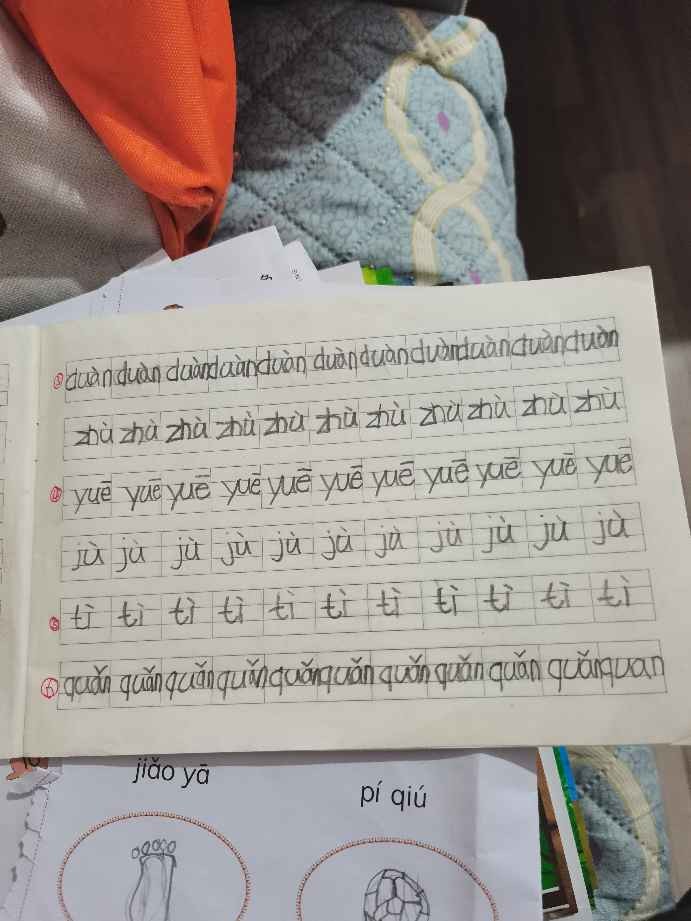 ③ duàn duàn duàn duàn duàn duàn duàn duàn duàn duàn duàn
zhù zhù zhù zhù zhù zhù zhù zhù zhù zhù zhù
④ yuē yuē yuē yuē yuē yuē yuē yuē yuē yuē yuē
jù jù jù jù jù jù jù jù jù jù jù
⑤ tì tì tì tì tì tì tì tì tì tì tì
⑥ quǎn quǎn quǎn quǎn quǎn quǎn quǎn quǎn quǎn quǎn quan
jiǎo yā
pí qiú